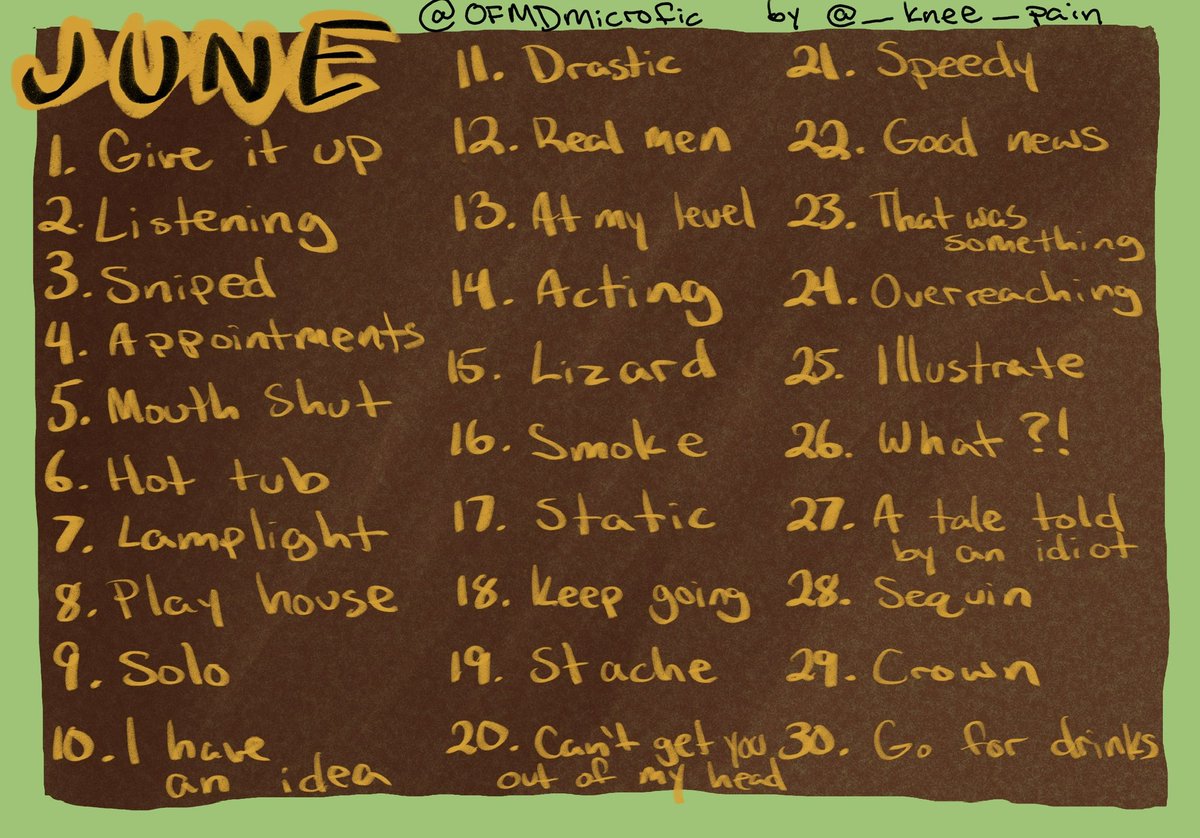 @OFMDmicrofic by @_knee_pain
JUNE
1. Give it up
2. Listening
3. Sniped
4. Appointments
5. Mouth Shut
6. Hot tub
7. Lamplight
8. Play house
9. Solo
10. I have
an idea
11. Drastic
12. Real men
13. At my level
14. Acting
15. Lizard
16. Smoke
17. Static
18. Keep going
19. Stache
20. Can't get you
out of my head
21. Speedy
22. Good news
23. That was
something
24. Overreaching
25. Illustrate
26. What?!
27. A tale told
by an idiot
28. Sequin
29. Crown
30. Go for drinks